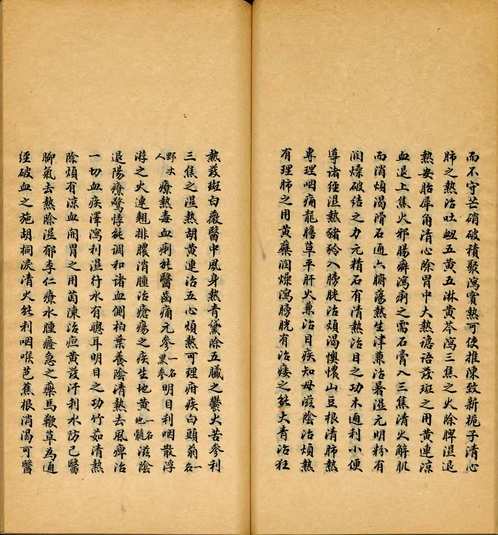 而不守芒硝破積聚瀉實熱可使推陳致新梔子清心
肺之熱治吐衄五黃五淋黃芩瀉三焦之火除脾濕退
熱安胎犀角清心除胃中大熱譫語發斑之用黃連涼
血退上焦火邪腸癖瀉痢之需石膏入三焦清火解肌
而消煩渴滑石通六腑蕩熱生津兼治暑濕元明粉有
潤燥破結之力元精石有清熱治目之功木通利小便
導諸經濕熱豬苓入膀胱治煩渴懊憹山豆根清肺熱
專理咽痛龍膽草平肝火兼治目疾知母滋陰治煩熱
有理肺之用黃蘗潤燥瀉膀胱有治痿之能大青治狂
熱發斑白薇醫中風身熱青黛除五臟之鬱火苦參利
三焦之濕熱胡黃連治五心煩熱可理疳疾白頭翁一名
野丈人療熱毒血痢能醫齒痛元參一名黑參明目利咽散浮
游之火連翹排膿消腫治瘡瘍之疾生地黃一名地髓滋陰
退陽療驚悸能調和諸血側柏葉養陰清熱去風痺治
一切血疾澤瀉利濕行水有聰耳明目之功竹茹清熱
除煩有涼血開胃之用茵蔯治疸黃發汗利水防己醫
腳氣去熱除濕郁李仁療水腫癃急之藥馬鞭草為通
經破血之施胡桐淚清火能利咽喉芭蕉根消渴可醫